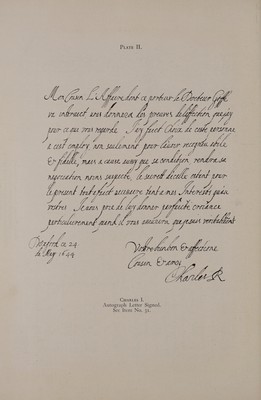 PLATE II.
Mon Cousin L'Affaire dont ce porteur le Docteur Goffe
va vous donnera des preuves de l'affection que j'ay
pour ce qui vous regarde. J'ay faict choix de ceste personne
a cest employ non seulement pour l'avoir recognu utile
et fidelle, mais a cause aussy que sa condition rendra sa
negociation moins suspecte, le secret d'icelle estant pour
le present tout a faict necessaire tant a mes Interests qu'aux
vostres. Je vous prie de luy donner parfaicte creance
particulierement quand il vous asseurera que je suis veritablement
Oxford ce 24
de May 1644
Vostre bien bon et affectione
Cousin et amy
Charles R
CHARLES I.
Autograph Letter Signed.
See Item No. 31.